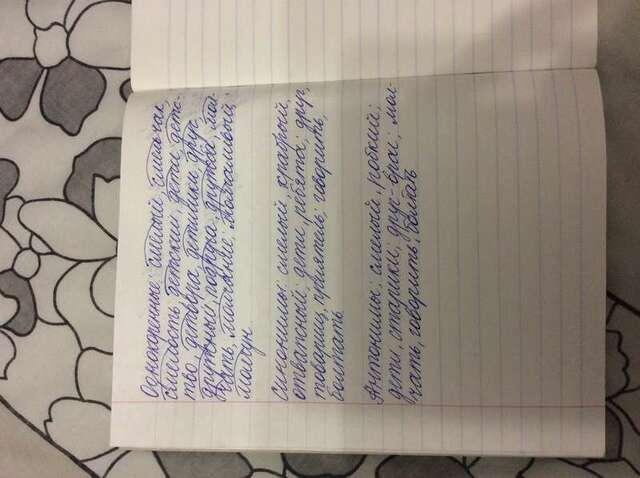 Однокоренные: смелый, смельчак,
смелость, детский, дети, детс-
тво, детвора, детишки, друг,
дружный, подруга, друзья, мол-
чать, молчание, молчаливый,
молчун.
Синонимы: смелый, храбрый,
отважный; дети, ребята; друг,
товарищ, приятель; говорить,
болтать
Антонимы: смелый, робкий;
дети, старики; друг-враг; мол-
чать, говорить, болтать